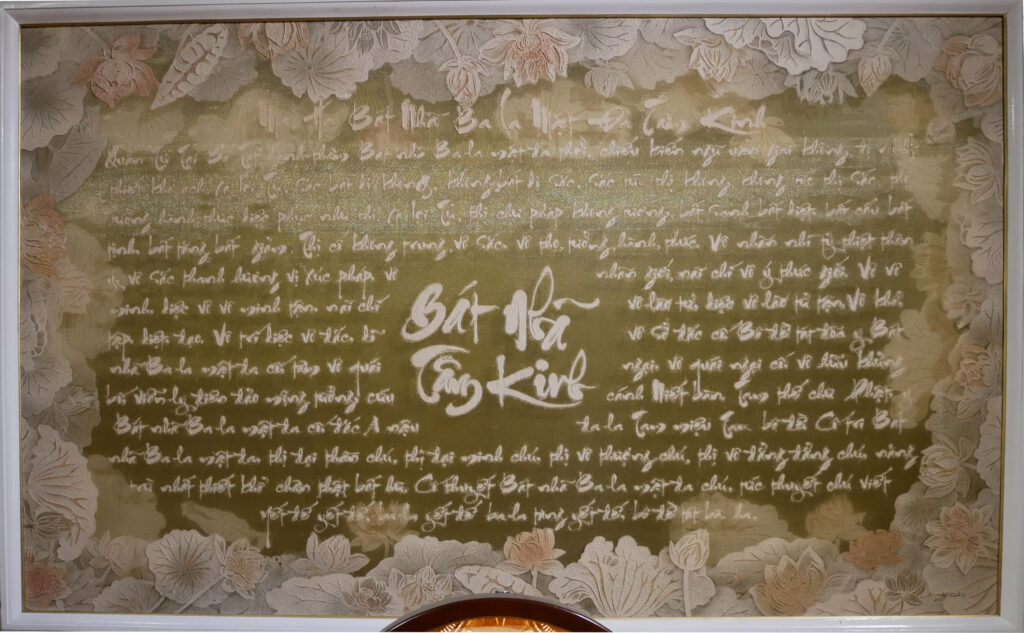 Ma Ha Bát Nhã Ba La Mật Đa Tâm Kinh
Quán Tự Tại Bồ Tát hành thâm Bát nhã Ba la mật đa thời, chiếu kiến ngũ uẩn giai không, độ nhất
thiết khổ ách. Xá lợi Tử, Sắc bất dị không, không bất dị Sắc, Sắc tức thị không không tức thị Sắc, thọ
tưởng hành thức diệc phục như thị. Xá lợi Tử, thị chư pháp không tướng, bất sanh bất diệt bất cấu bất
tịnh bất tăng bất giảm. Thị cố không trung vô Sắc, vô thọ, tưởng, hành, thức. Vô nhãn nhĩ tỷ thiệt thân
ý, vô Sắc thanh hương vị xúc pháp, vô nhãn giới, nãi chí vô ý thức giới. Vô vô
minh, diệc vô vô minh tận, nãi chí vô lão tử, diệc vô lão tử tận. Vô khổ
tập diệt đạo. Vô trí diệc vô đắc, dĩ vô Sở đắc cố. Bồ đề tát đỏa y Bát
nhã Ba la mật đa cố tâm vô quái ngại, vô quái ngại cố vô hữu khủng
bố, viễn ly điên đảo mộng tưởng cứu cánh Niết bàn. Tam thế chư Phật, y
Bát nhã Ba la mật đa cố đắc A nậu đa la Tam miệu Tam bồ đề. Cố tri Bát
nhã Ba la mật đa thị đại thần chú, thị đại minh chú, thị vô thượng chú, thị vô đẳng đẳng chú, năng
trừ nhất thiết khổ chân thật bất hư. Cố thuyết Bát nhã Ba la mật đa chú, tức thuyết chú viết
yết đế yết đế, ba la yết đế ba la tăng yết đế, bồ đề tát bà ha.
Bát Nhã
Tâm Kinh